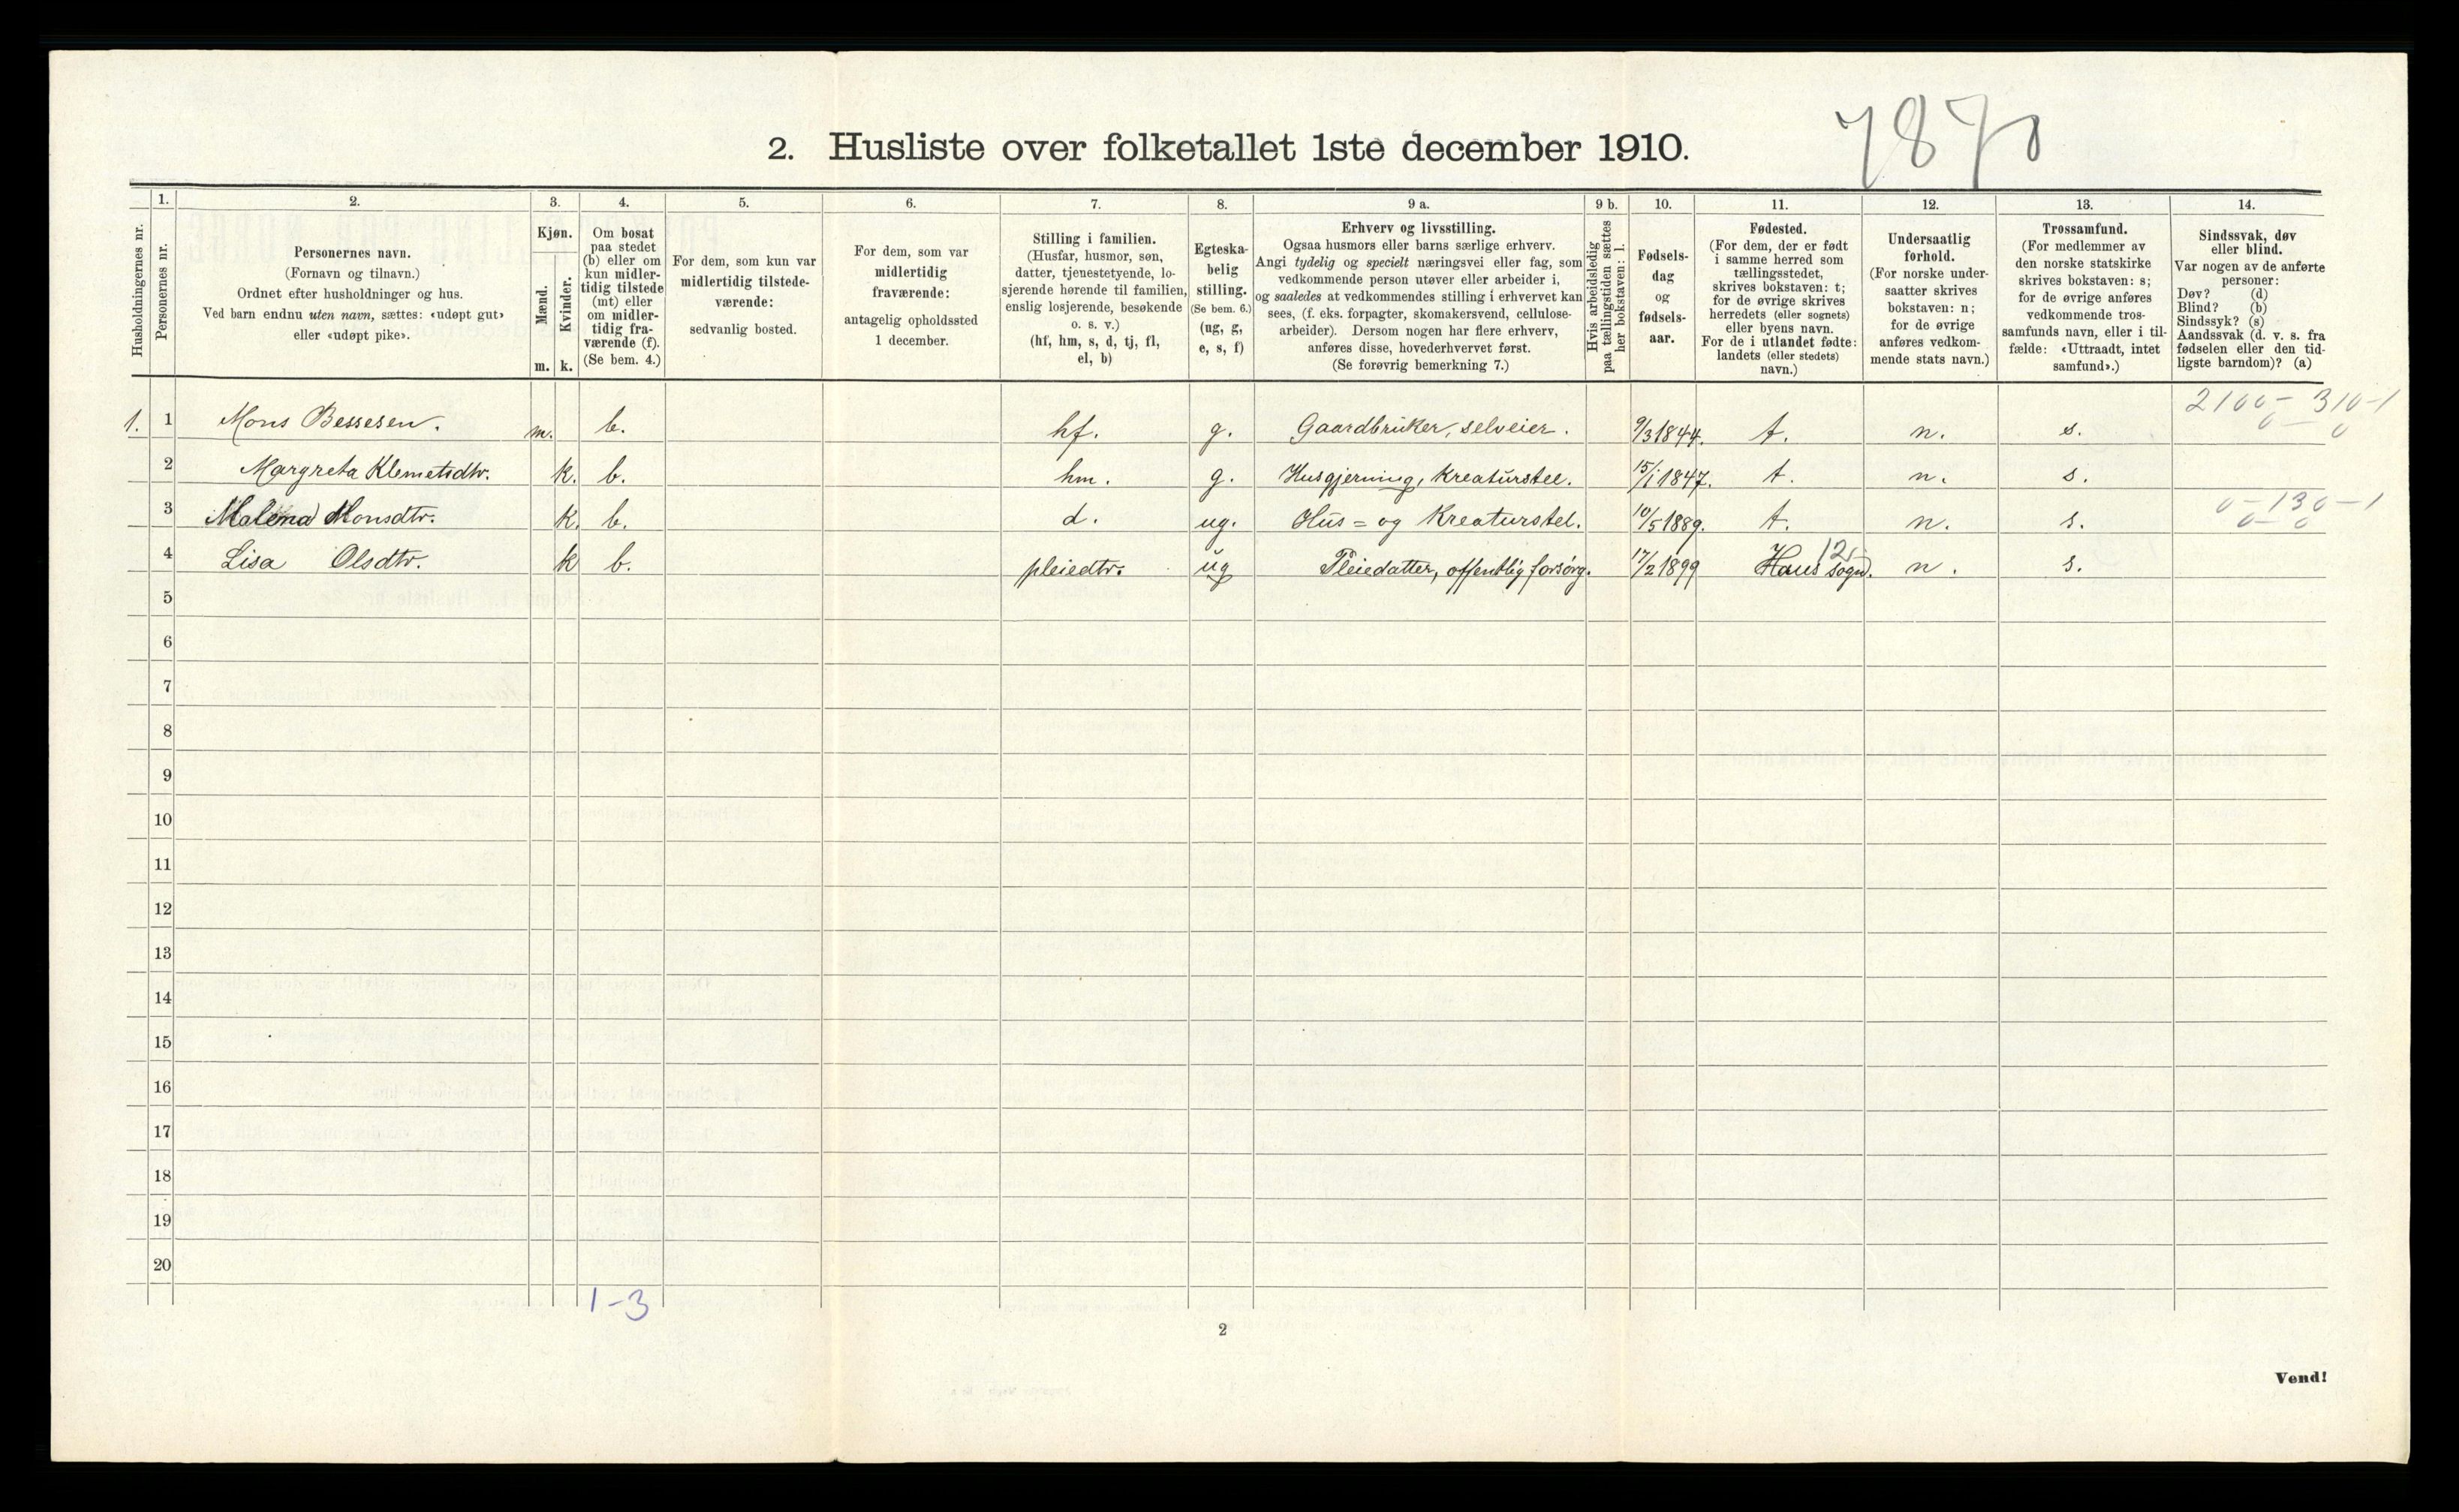 7870
2. Husliste over folketallet 1ste december 1910.
Husholdningernes nr.
1.
Personernes nr.
2.
Personernes navn.
(Fornavn og tilnavn.)
Ordnet efter husholdninger og hus.
Ved barn endnu uten navn, sættes: «udøpt gut»
eller «udøpt pike».
3.
Kjøn.
Mænd.
Kvinder.
m. k.
4.
Om bosat
paa stedet
(b) eller om
kun midler-
tidig tilstede
(mt) eller
om midler-
tidig fra-
værende (f).
(Se bem. 4.)
5.
For dem, som kun var
midlertidig tilstede-
værende:
sedvanlig bosted.
6.
For dem, som var
midlertidig
fraværende:
antagelig opholdssted
1 december.
7.
Stilling i familien.
(Husfar, husmor, søn,
datter, tjenestetyende, lo-
sjerende hørende til familien,
enslig losjerende, besøkende
o. s. v.)
(hf, hm, s, d, tj, fl,
el, b)
8.
Egteska-
belig
stilling.
(Se bem. 6.)
(ug, g,
e, s, f)
9 a.
Erhverv og livsstilling.
Ogsaa husmors eller barns særlige erhverv.
Angi tydelig og specielt næringsvei eller fag, som
vedkommende person utøver eller arbeider i,
og saaledes at vedkommendes stilling i erhvervet kan
sees, (f. eks. forpagter, skomakersvend, cellulose-
arbeider). Dersom nogen har flere erhverv,
anføres disse, hovederhvervet først.
(Se forøvrig bemerkning 7.)
9 b.
Hvis arbeidsledig
paa tællingstiden sættes
her bokstaven: l.
10.
Fødsels-
dag
og
fødsels-
aar.
11.
Fødested.
(For dem, der er født
i samme herred som
tællingsstedet,
skrives bokstaven: t;
for de øvrige skrives
herredets (eller sognets)
eller byens navn.
For de i utlandet fødte:
landets (eller stedets)
navn.)
12.
Undersaatlig
forhold.
(For norske under-
saatter skrives
bokstaven: n;
for de øvrige
anføres vedkom-
mende stats navn.)
13.
Trossamfund.
(For medlemmer av
den norske statskirke
skrives bokstaven: s;
for de øvrige anføres
vedkommende tros-
samfunds navn, eller i til-
fælde: «Uttraadt, intet
samfund».)
14.
Sindssvak, døv
eller blind.
Var nogen av de anførte
personer:
Døv? (d)
Blind? (b)
Sindssyk? (s)
Aandssvak (d. v. s. fra
fødselen eller den tid-
ligste barndom)? (a)
2100 - 310-1
0 - 0
1. 1 Mons Bessesen. m. b. hf. g. Gaardbruker, selveier. 9/3 1844. t. n. s.
2 Margreta Klemetsdtr. k. b. hm. g. Husgjerning, Kreaturstel. 15/1 1847. t. n. s.
3 Malena Monsdtr. k. b. d. ug. Hus= og Kreaturstel. 10/5 1889. t. n. s. 0 - 130 - 1
0 - 0
4 Lisa Olsdtr. k b. pleiedtr. ug Pleiedatter, offentlig forsørg. 17/2 1899 Haus sogn. 12 n. s.
5
6
7
8
9
10
11
12
13
14
15
16
17
18
19
20
1-3
2
Vend!